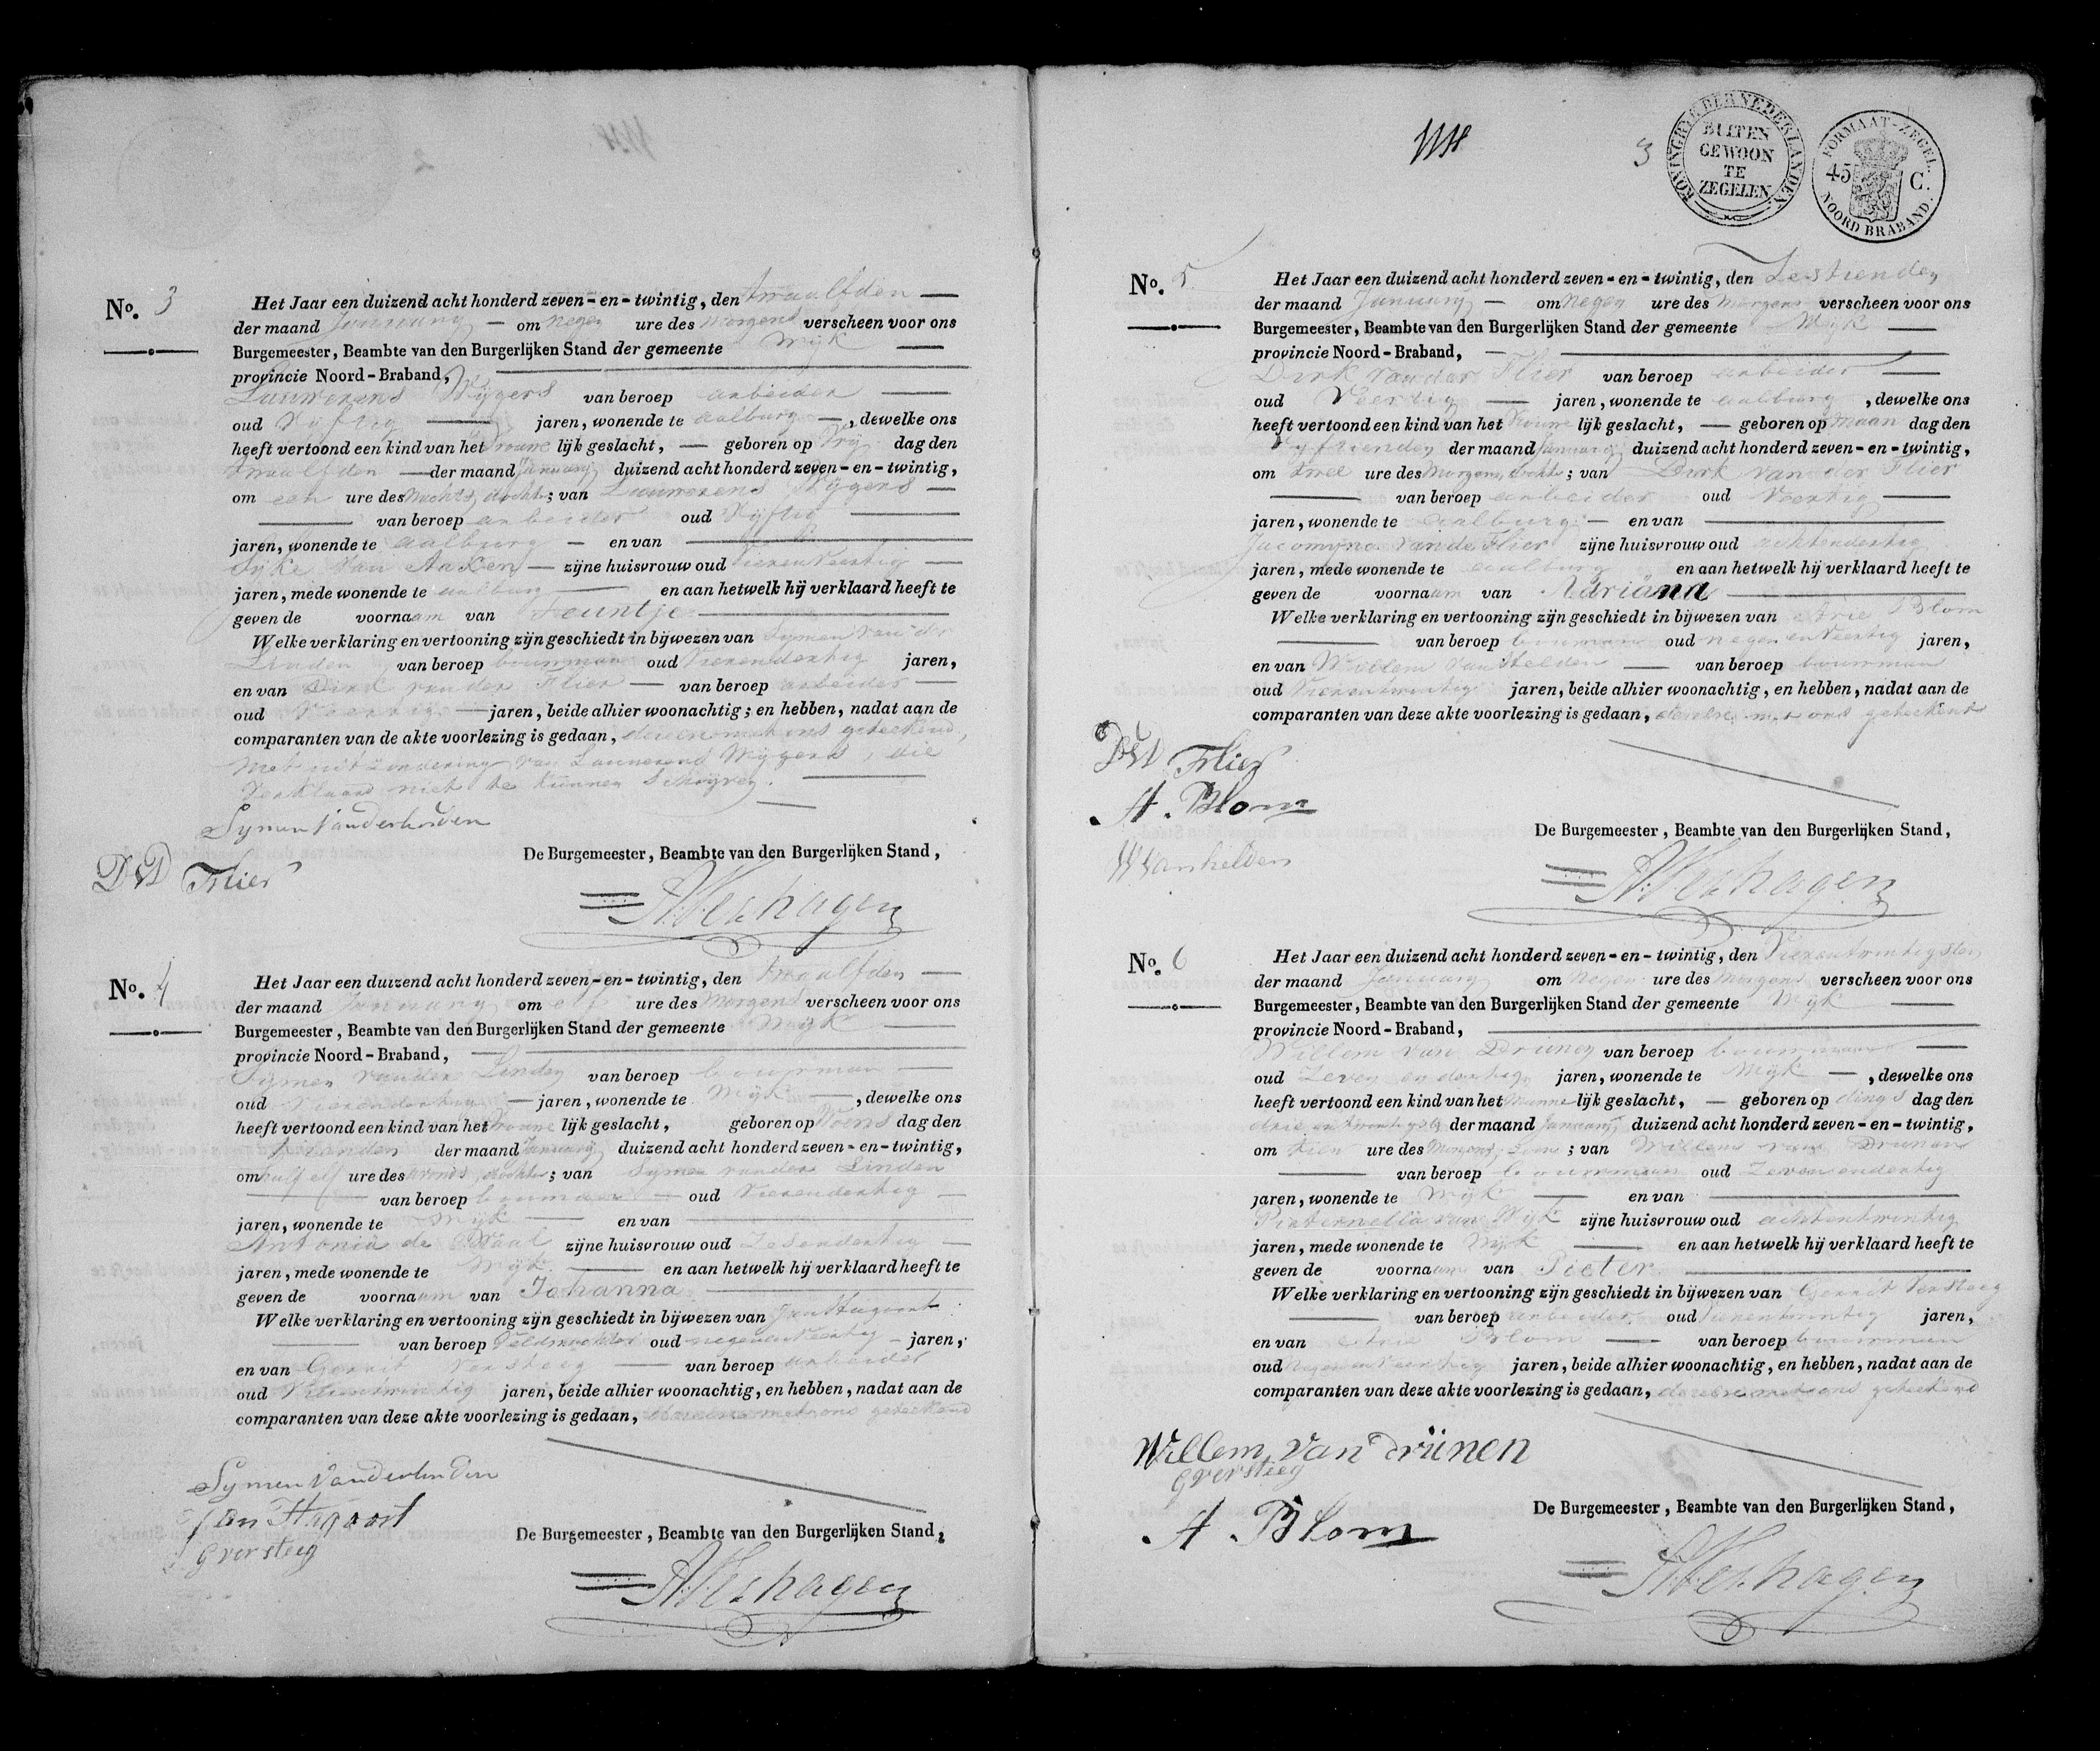 No. 3
Het Jaar een duizend acht honderd zeven-en-twintig, den twaalfden
der maand Januarij om negen ure des morgens verscheen voor ons
Burgemeester, Beambte van den Burgerlijken Stand der gemeente Wijk
provincie Noord-Braband,
Lauwerens Wijgers van beroep arbeider
oud Vijftig jaren, wonende te aalburg, dewelke ons
heeft vertoond een kind van het vrouwe lijk geslacht, geboren op Vrij dag den
twaalfden der maand Januarij duizend acht honderd zeven-en-twintig,
om een ure des Nachts, dochter; van Lauwerens Wijgers
van beroep arbeider oud Vijftig
jaren, wonende te aalburg en van
Sijke van Aaken zijne huisvrouw oud Vierenveertig
jaren, mede wonende te aalburg en aan hetwelk hij verklaard heeft te
geven de voornaam van Teuntje
Welke verklaring en vertooning zijn geschiedt in bijwezen van Symen van der
Linden van beroep bouwman oud Vierendertig jaren,
en van Dirk van der Flier van beroep arbeider
oud Veertig jaren, beide alhier woonachtig; en hebben, nadat aan de
comparanten van de akte voorlezing is gedaan, dezelve met ons geteekend,
met uitzondering van Lauwerens Wijgers, die
verklaard niet te kunnen Schrijven.
Symen Vanderlinden
DVD Flier
De Burgemeester, Beambte van den Burgerlijken Stand,
AVerhagen
No. 4
Het Jaar een duizend acht honderd zeven-en-twintig, den twaalfden
der maand Januarij om elf ure des Morgens verscheen voor ons
Burgemeester, Beambte van den Burgerlijken Stand der gemeente Wijk
provincie Noord-Braband,
Symen van der Linden van beroep bouwman
oud Vierendertig jaren, wonende te Wijk, dewelke ons
heeft vertoond een kind van het vrouwe lijk geslacht, geboren op Woens dag den
der maand Januarij duizend acht honderd zeven-en-twintig,
om half elf ure des avonds dochter; van Symen van der Linden
van beroep bouwman oud Vierendertig
jaren, wonende te Wijk en van
Antonia de Waal zijne huisvrouw oud Zesendertig
jaren, mede wonende te Wijk en aan hetwelk hij verklaard heeft te
geven de voornaam van Johanna
Welke verklaring en vertooning zijn geschiedt in bijwezen van Jan
van beroep Veldwachter oud negenenveertig jaren,
en van Gerrit Versteeg van beroep arbeider
oud jaren, beide alhier woonachtig, en hebben, nadat aan de
comparanten van deze akte voorlezing is gedaan, dezelve met ons geteekend
Symen Vanderlinden
Jan
G versteeg
De Burgemeester, Beambte van den Burgerlijken Stand,
AVerhagen
3
KONINGRYK DER NEDERLANDEN
BUITEN
GEWOON
TE
ZEGELEN
FORMAAT-ZEGEL
45 C.
NOORD BRABAND.
No. 5
Het Jaar een duizend acht honderd zeven-en-twintig, den Zestienden
der maand Januarij om negen ure des Morgens verscheen voor ons
Burgemeester, Beambte van den Burgerlijken Stand der gemeente Wijk
provincie Noord-Braband,
Dirk van der Flier van beroep arbeider
oud Veertig jaren, wonende te aalburg, dewelke ons
heeft vertoond een kind van het vrouwe lijk geslacht, geboren op Maan dag den
Vyftienden der maand Januarij duizend acht honderd zeven-en-twintig,
om twee ure des Morgens, dochter; van Dirk van der Flier
van beroep arbeider oud Veertig
jaren, wonende te aalburg en van
Jacomijna van de Flier zijne huisvrouw oud achtendertig
jaren, mede wonende te aalburg en aan hetwelk hij verklaard heeft te
geven de voornaam van Adriana
Welke verklaring en vertooning zijn geschiedt in bijwezen van Arie Blom
van beroep bouwman oud negenenveertig jaren,
en van Willem van Helden van beroep bouwman
oud Vierentwintig jaren, beide alhier woonachtig, en hebben, nadat aan de
comparanten van deze akte voorlezing is gedaan, dezelve met ons geteekend
DVD Flier
A. Blom
W Vanhelden
De Burgemeester, Beambte van den Burgerlijken Stand,
AVerhagen
No. 6
Het Jaar een duizend acht honderd zeven-en-twintig, den Vierentwintigsten
der maand Januarij om negen ure des Morgens verscheen voor ons
Burgemeester, Beambte van den Burgerlijken Stand der gemeente Wijk
provincie Noord-Braband,
Willem van Drunen van beroep bouwman
oud Zeven en dertig jaren, wonende te Wijk, dewelke ons
heeft vertoond een kind van het Manne lijk geslacht, geboren op dings dag den
drie en twintigste der maand Januarij duizend acht honderd zeven-en-twintig,
om tien ure des Morgens, Zoon; van Willem van Drunen
van beroep bouwman oud Zevenendertig
jaren, wonende te Wijk en van
Pieternella van Wijk zijne huisvrouw oud achtentwintig
jaren, mede wonende te Wijk en aan hetwelk hij verklaard heeft te
geven de voornaam van Pieter
Welke verklaring en vertooning zijn geschiedt in bijwezen van Gerrit Versteeg
van beroep arbeider oud jaren,
en van Arie Blom van beroep bouwman
oud Negenenveertig jaren, beide alhier woonachtig, en hebben, nadat aan de
comparanten van deze akte voorlezing is gedaan, dezelve met ons geteekend
Willem van Drünen
G versteeg
A. Blom
De Burgemeester, Beambte van den Burgerlijken Stand,
AVerhagen